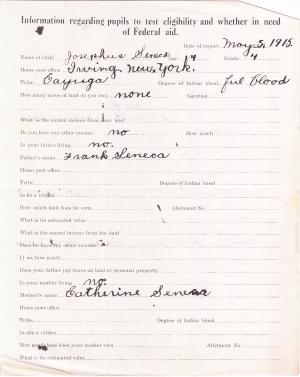 Information regarding pupils to test eligibility and whether in need
of Federal aid.
Date of report, May 5, 1915.
Name of child Josephus Seneca Age 17 Grade 4
Home post office Irving, New York.
Tribe Cayuga Degree of Indian blood ful blood
How many acres of land do you own none Location
What is the annual income from your land
Do you have any other income no How much
Is your father living no.
Father's name Frank Seneca
Home post office
Tribe Degree of Indian blood
Is he a citizen
How much land does he own Allotment No.
What is its estimated value
What is the annual income from his land
Does he have any other income
If so, how much
Does your father pay taxes on land or personal property
Is your mother living no.
Mother's name Catherine Seneca
Home post office
Tribe Degree of Indian blood
Is she a citizen
How much land does your mother own Allotment No.
What is its estimated value